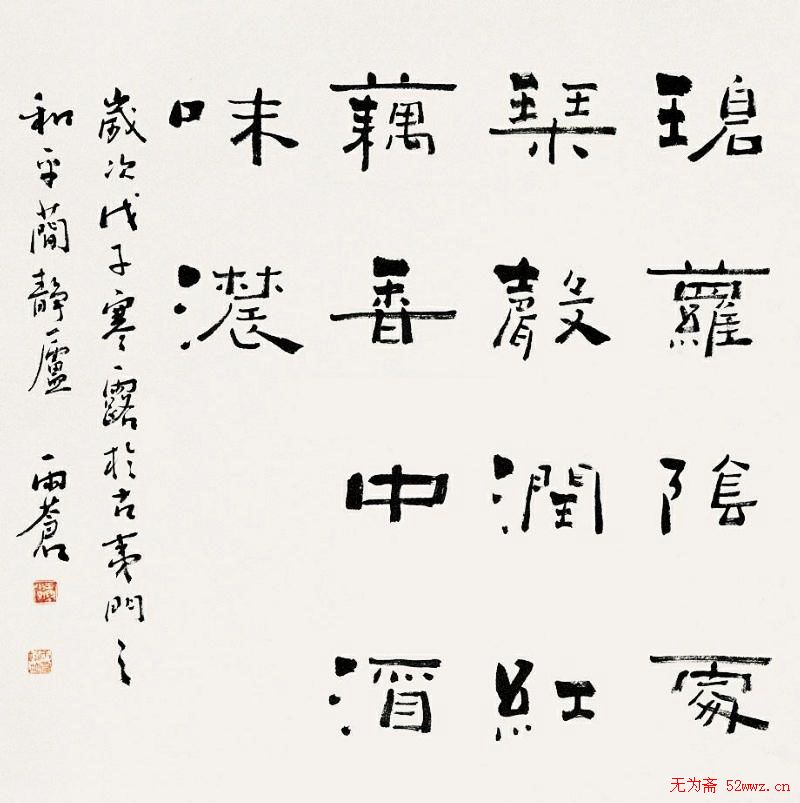 碧蘿陰
琴聲潤紅
藕香中酒
味濃
歲次戊子寒露於古夷門之
和平簡靜廬 雨蒼
无为斋 52wwz.cn